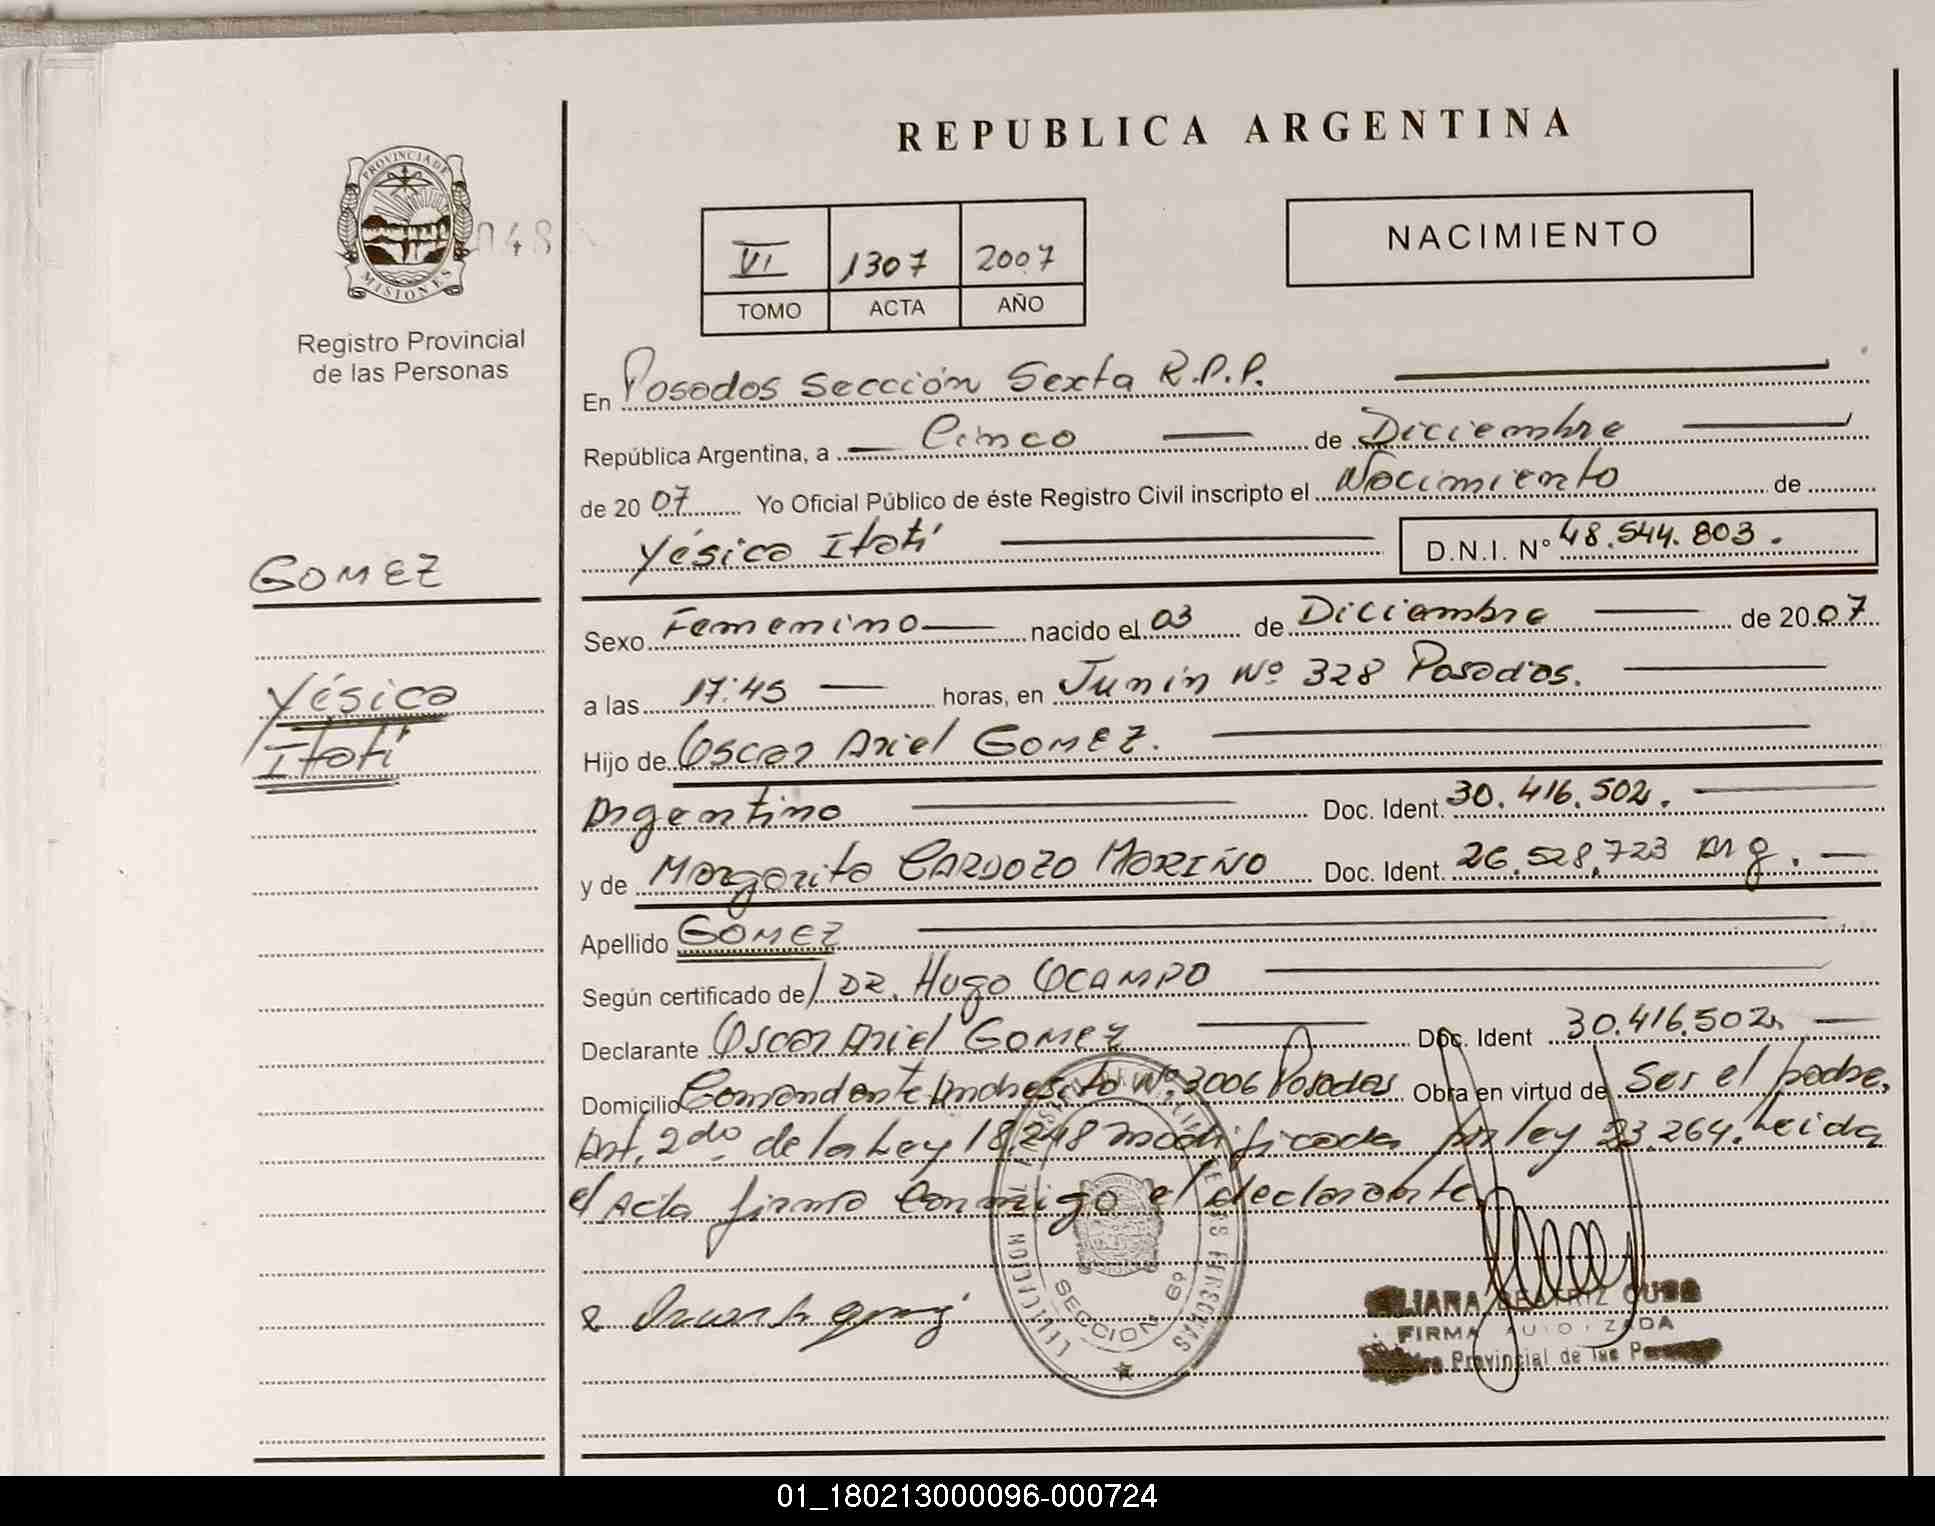 REPUBLICA ARGENTINA
PROVINCIA DE
MISIONES
048
Registro Provincial
de las Personas
VI 1307 2007
TOMO ACTA AÑO
NACIMIENTO
En Posadas Sección Sexta R.P.P.
República Argentina, a Cinco de Diciembre
de 2007 Yo Oficial Público de éste Registro Civil inscripto el Nacimiento de
Yésica Itatí D.N.I. N° 48.544.803.
GOMEZ
Yésica
Itatí
Sexo Femenino nacido el 03 de Diciembre de 2007
a las 17:45 horas, en Junín Nº 328 Posadas.
Hijo de Oscar Ariel GOMEZ.
Argentino Doc. Ident. 30.416.502.
y de Margarita CARDOZO MARIÑO Doc. Ident. 26.528,723 Arg.
Apellido GOMEZ
Según certificado del DR. Hugo OCAMPO
Declarante Oscar Ariel GOMEZ Doc. Ident 30.416.502
Domicilio Comandante Andresito Nº 3006 Posadas Obra en virtud de Ser el padre,
Art. 2do. de la Ley 18.248 modificada por ley 23.264. Leida
el Acta firma Conmigo el declarante.
SECCION 6º
BEATRIZ
FIRMA AUTORIZADA
Provincial de las
01_180213000096-000724